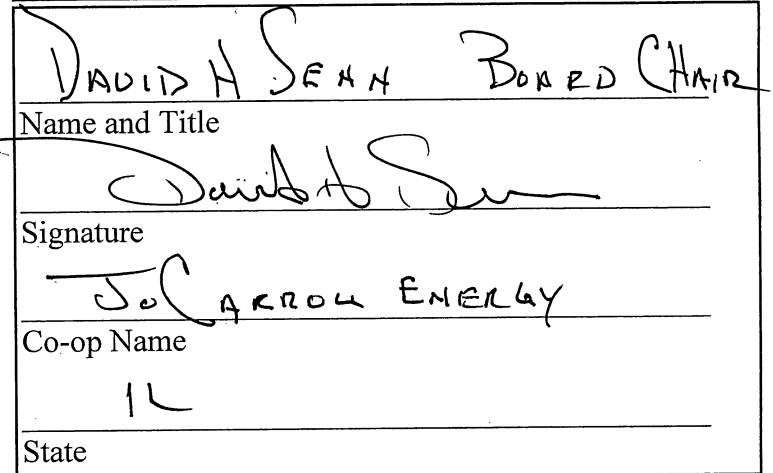 DAVID H SENN BOARD CHAIR
Name and Title
David H Senn
Signature
JO CARROLL ENERGY
Co-op Name
IL
State